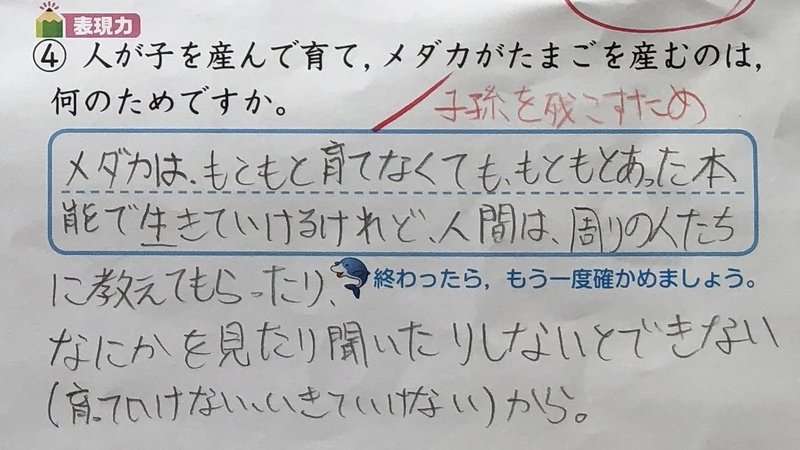 表現力
④ 人が子を産んで育て，メダカがたまごを産むのは，
何のためですか。
子孫を残こすため
メダカは、もともと育てなくても、もともとあった本
能で生きていけるけれど、人間は、周りの人たち
に教えてもらったり、
終わったら，もう一度確かめましょう。
なにかを見たり聞いたりしないとできない
(育ていけない、いきていけない)から。